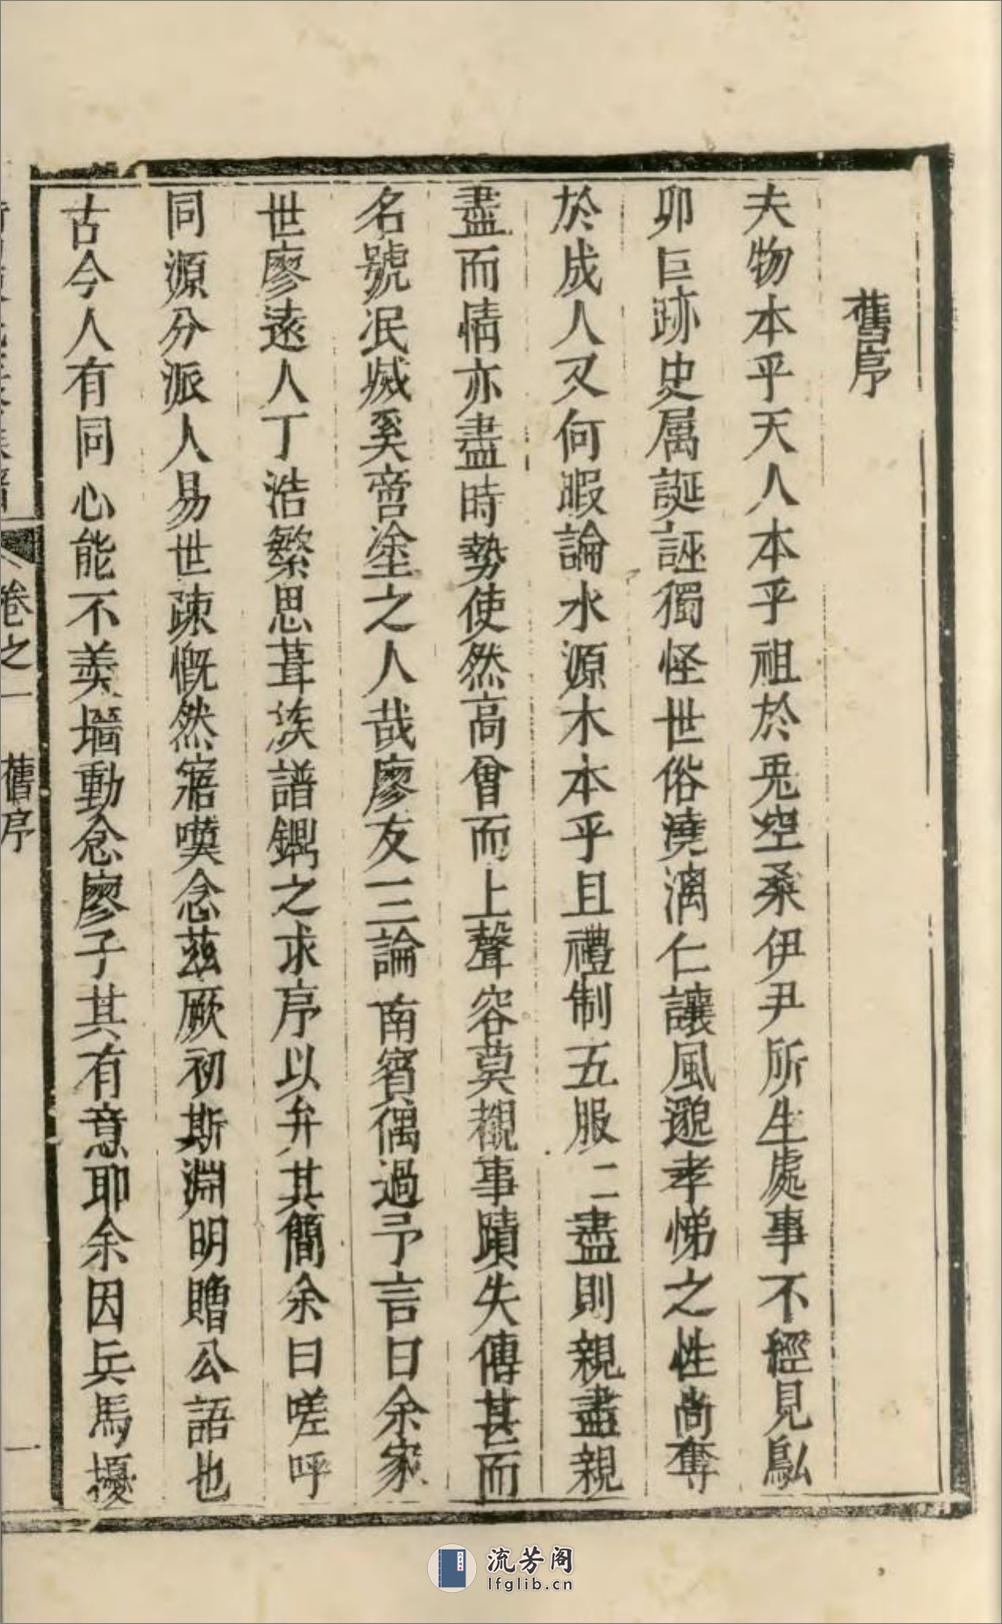 舊序
夫物本乎天人本乎祖於兎空桑伊尹所生處事不經見鳦
卵巨跡史属誕誣獨怪世俗澆漓仁讓風邈孝悌之性尚奪
於成人又何暇論水源木本乎且禮制五服二盡則親盡親
盡而情亦盡時勢使然高曾而上聲容莫覩事蹟失傳甚而
名號泯滅奚啻塗之人哉廖友三論南賓偶過予言曰余家
世廖遠人丁浩繁思葺族譜鐫之求序以弁其簡余曰嗟呼
同源分派人易世疎慨然寤嘆念茲厥初斯淵明贈公語也
古今人有同心能不羙墻動念廖子其有意耶余因兵馬擾
卷之一 舊序 一
流芳阁
lfglib.cn